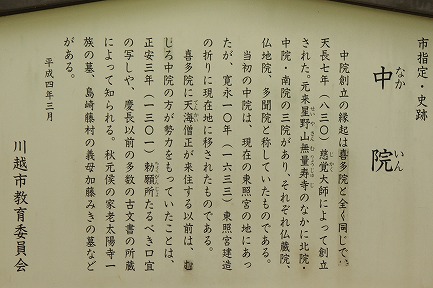 市指定・史跡
中院
なかいん
中院創立の縁起は喜多院と全く同じで、
天長七年(八三〇)慈覚大師によって創立
された。元来星野山無量寿寺のなかに北院・
中院・南院の三院があり、それぞれ仏蔵院、
仏地院、多聞院と称していたものである。
当初の中院は、現在の東照宮の地にあっ
たが、寛永一〇年(一六三三)東照宮建造
の折りに現在地に移されたものである。
喜多院に天海僧正が来住する以前は、む
しろ中院の方が勢力をもっていたことは、
正安三年(一三〇一)勅願所たるべき口宜
の写しや、慶長以前の多数の古文書の所蔵
によって知られる。秋元侯の家老太陽寺一
族の墓、島崎藤村の義母加藤みきの墓など
がある。
平成四年三月
川越市教育委員会